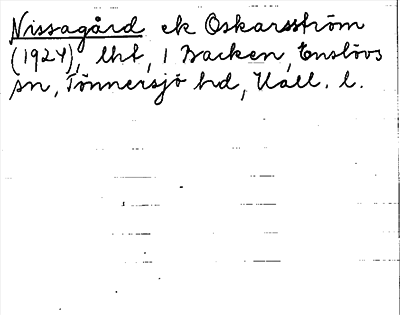 Nissagård ek Oskarsström
(1924), lht, 1 Backen, Enslövs
sn, Tönnersjö hd, Hall. l.